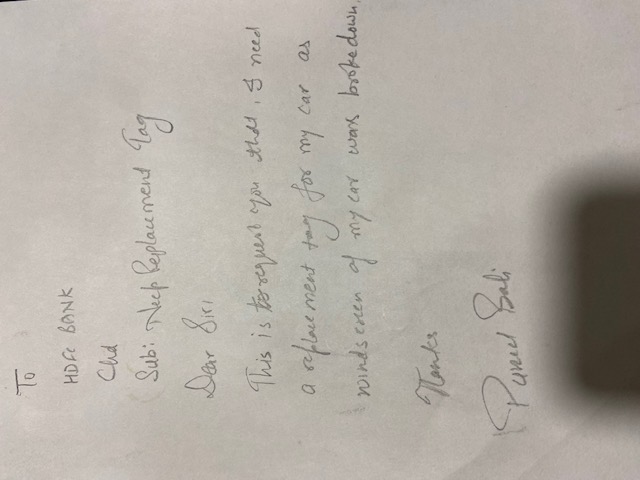 To
HDFC BANK
Chd
Sub: Need Replacement Tag
Dear Sir,
This is to request you that, I need
a replacement tag for my car as
windscreen of my car was brokedown.
Thanks
Puneet Bali